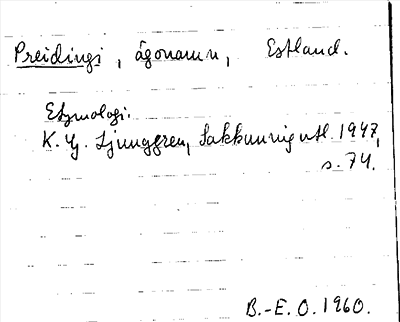 Preidingi, ägonamn, Estland.
Etymologi.
K. G. Ljunggren, Sakkunnigutl. 1947,
s. 74.
B.-E. O. 1960.